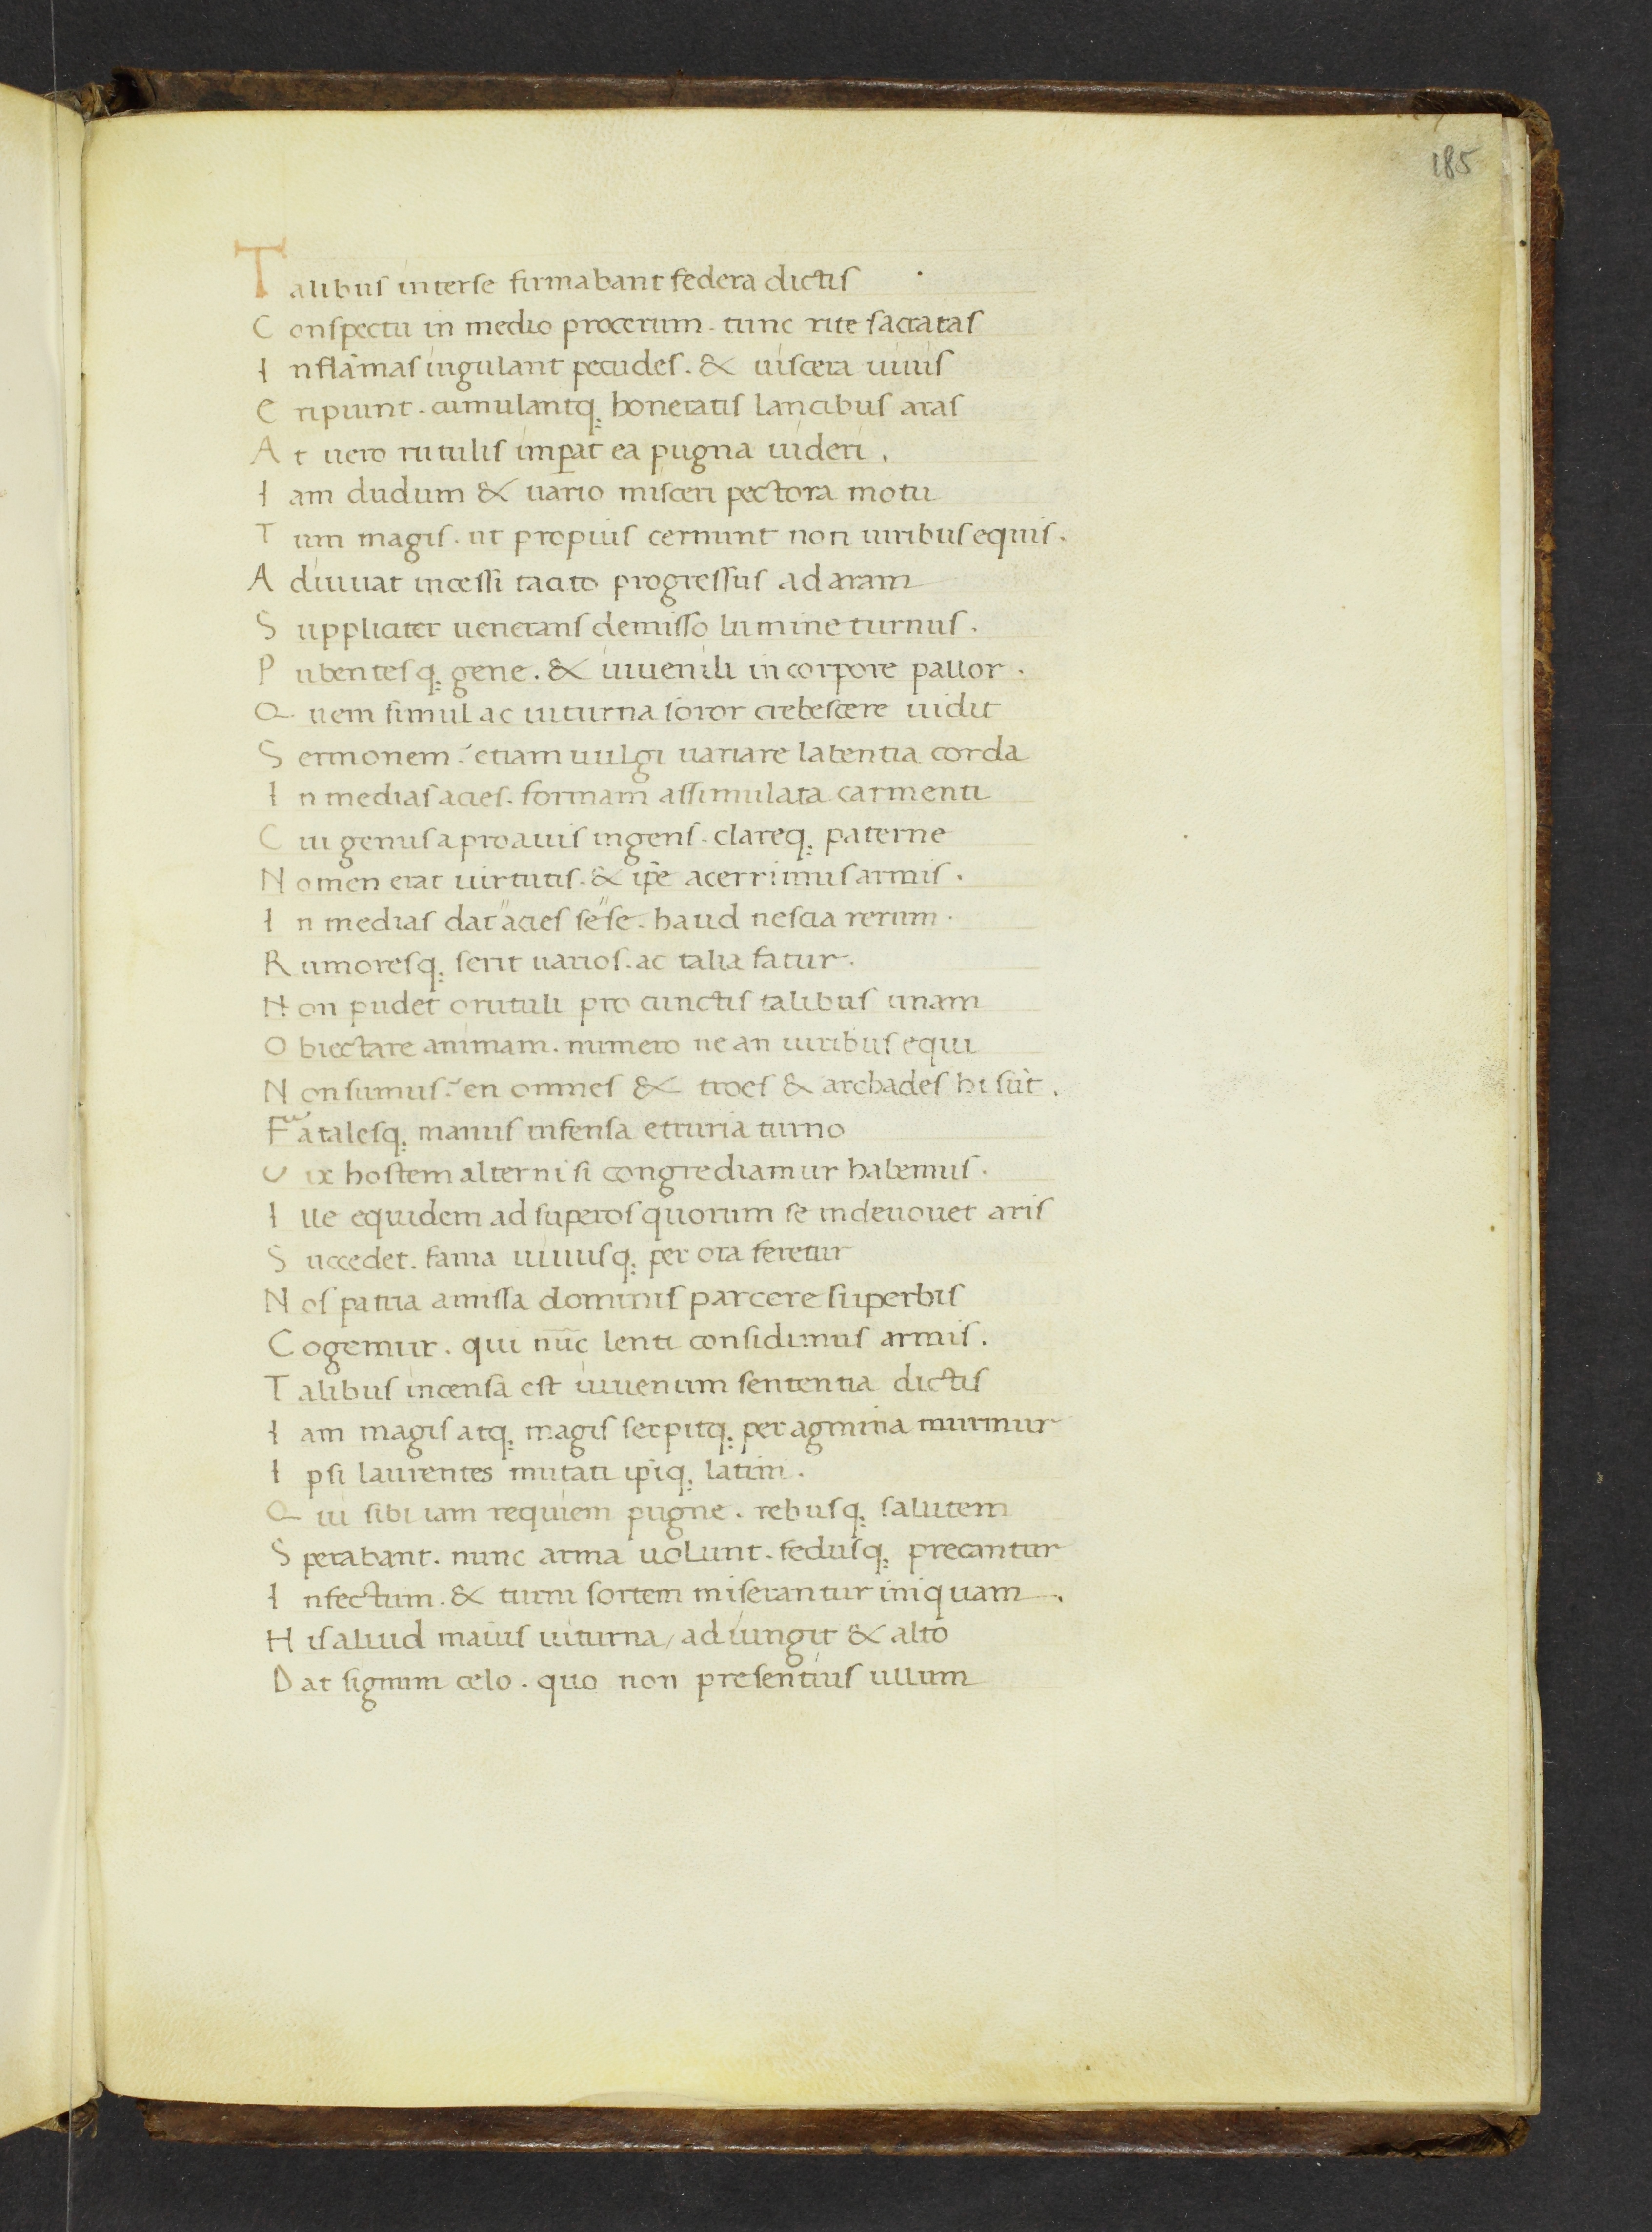 185
Talibus interse firmabant federa dictis
Conspectu in medio procerum. tunc rite sacratas
In flāmas iugulant pecudes. & uiscera uiuis
Eripiunt. cumulantq; honeratis lancibus aras
At uero rutulis impar ea pugna uideri.
Iam dudum & uario misceri pectora motu
Tum magis. ut propius cernunt non uiribus equis.
Adiuuat incessi tacito progressus ad aram
Suppliciter uenerans demisso lumine turnus.
Pubentesq; gene. & iuuenili in corpore pallor.
Quem simul ac iuturna soror crebescere uidit
Sermonem. etiam uulgi uariare labentia corda
In medias acies. formam assimulata carmenti
Cui genus a proauis ingens. clareq; paterne
Nomen erat uirtutis. & ip̄e acerrimus armis.
In medias dat acies sese. haud nescia rerum.
Rumoresq; serit uarios. ac talia fatur.
Non pudet o rutuli pro cunctis talibus unam
Obiectare animam. numero ne an uiribus equi
Non sumus. en omnes & troes & archades hi sūt.
Fatalesq; manus infensa etruria turno
Vix hostem alterni si congrediamur habemus.
Ille equidem ad superos quorum se indeuouet aris
Succedet. fama uiuusq; per ora feretur
Nos patria amissa dominis parcere superbis
Cogemur. qui nūc lenti considimus armis.
Talibus incensa est iuuenum sententia dictis
Iam magis atq; magis serpitq; per agmina murmur
Ipsi laurentes mutati ip̄iq; latini.
Qui sibi iam requiem pugne. rebusq; salutem
Sperabant. nunc arma uolunt. fedusq; precantur
Infectum. & turni sortem miserantur iniquam.
His aliud maius iuturna, adiungit & alto
Dat signum celo. quo non presentius ullum